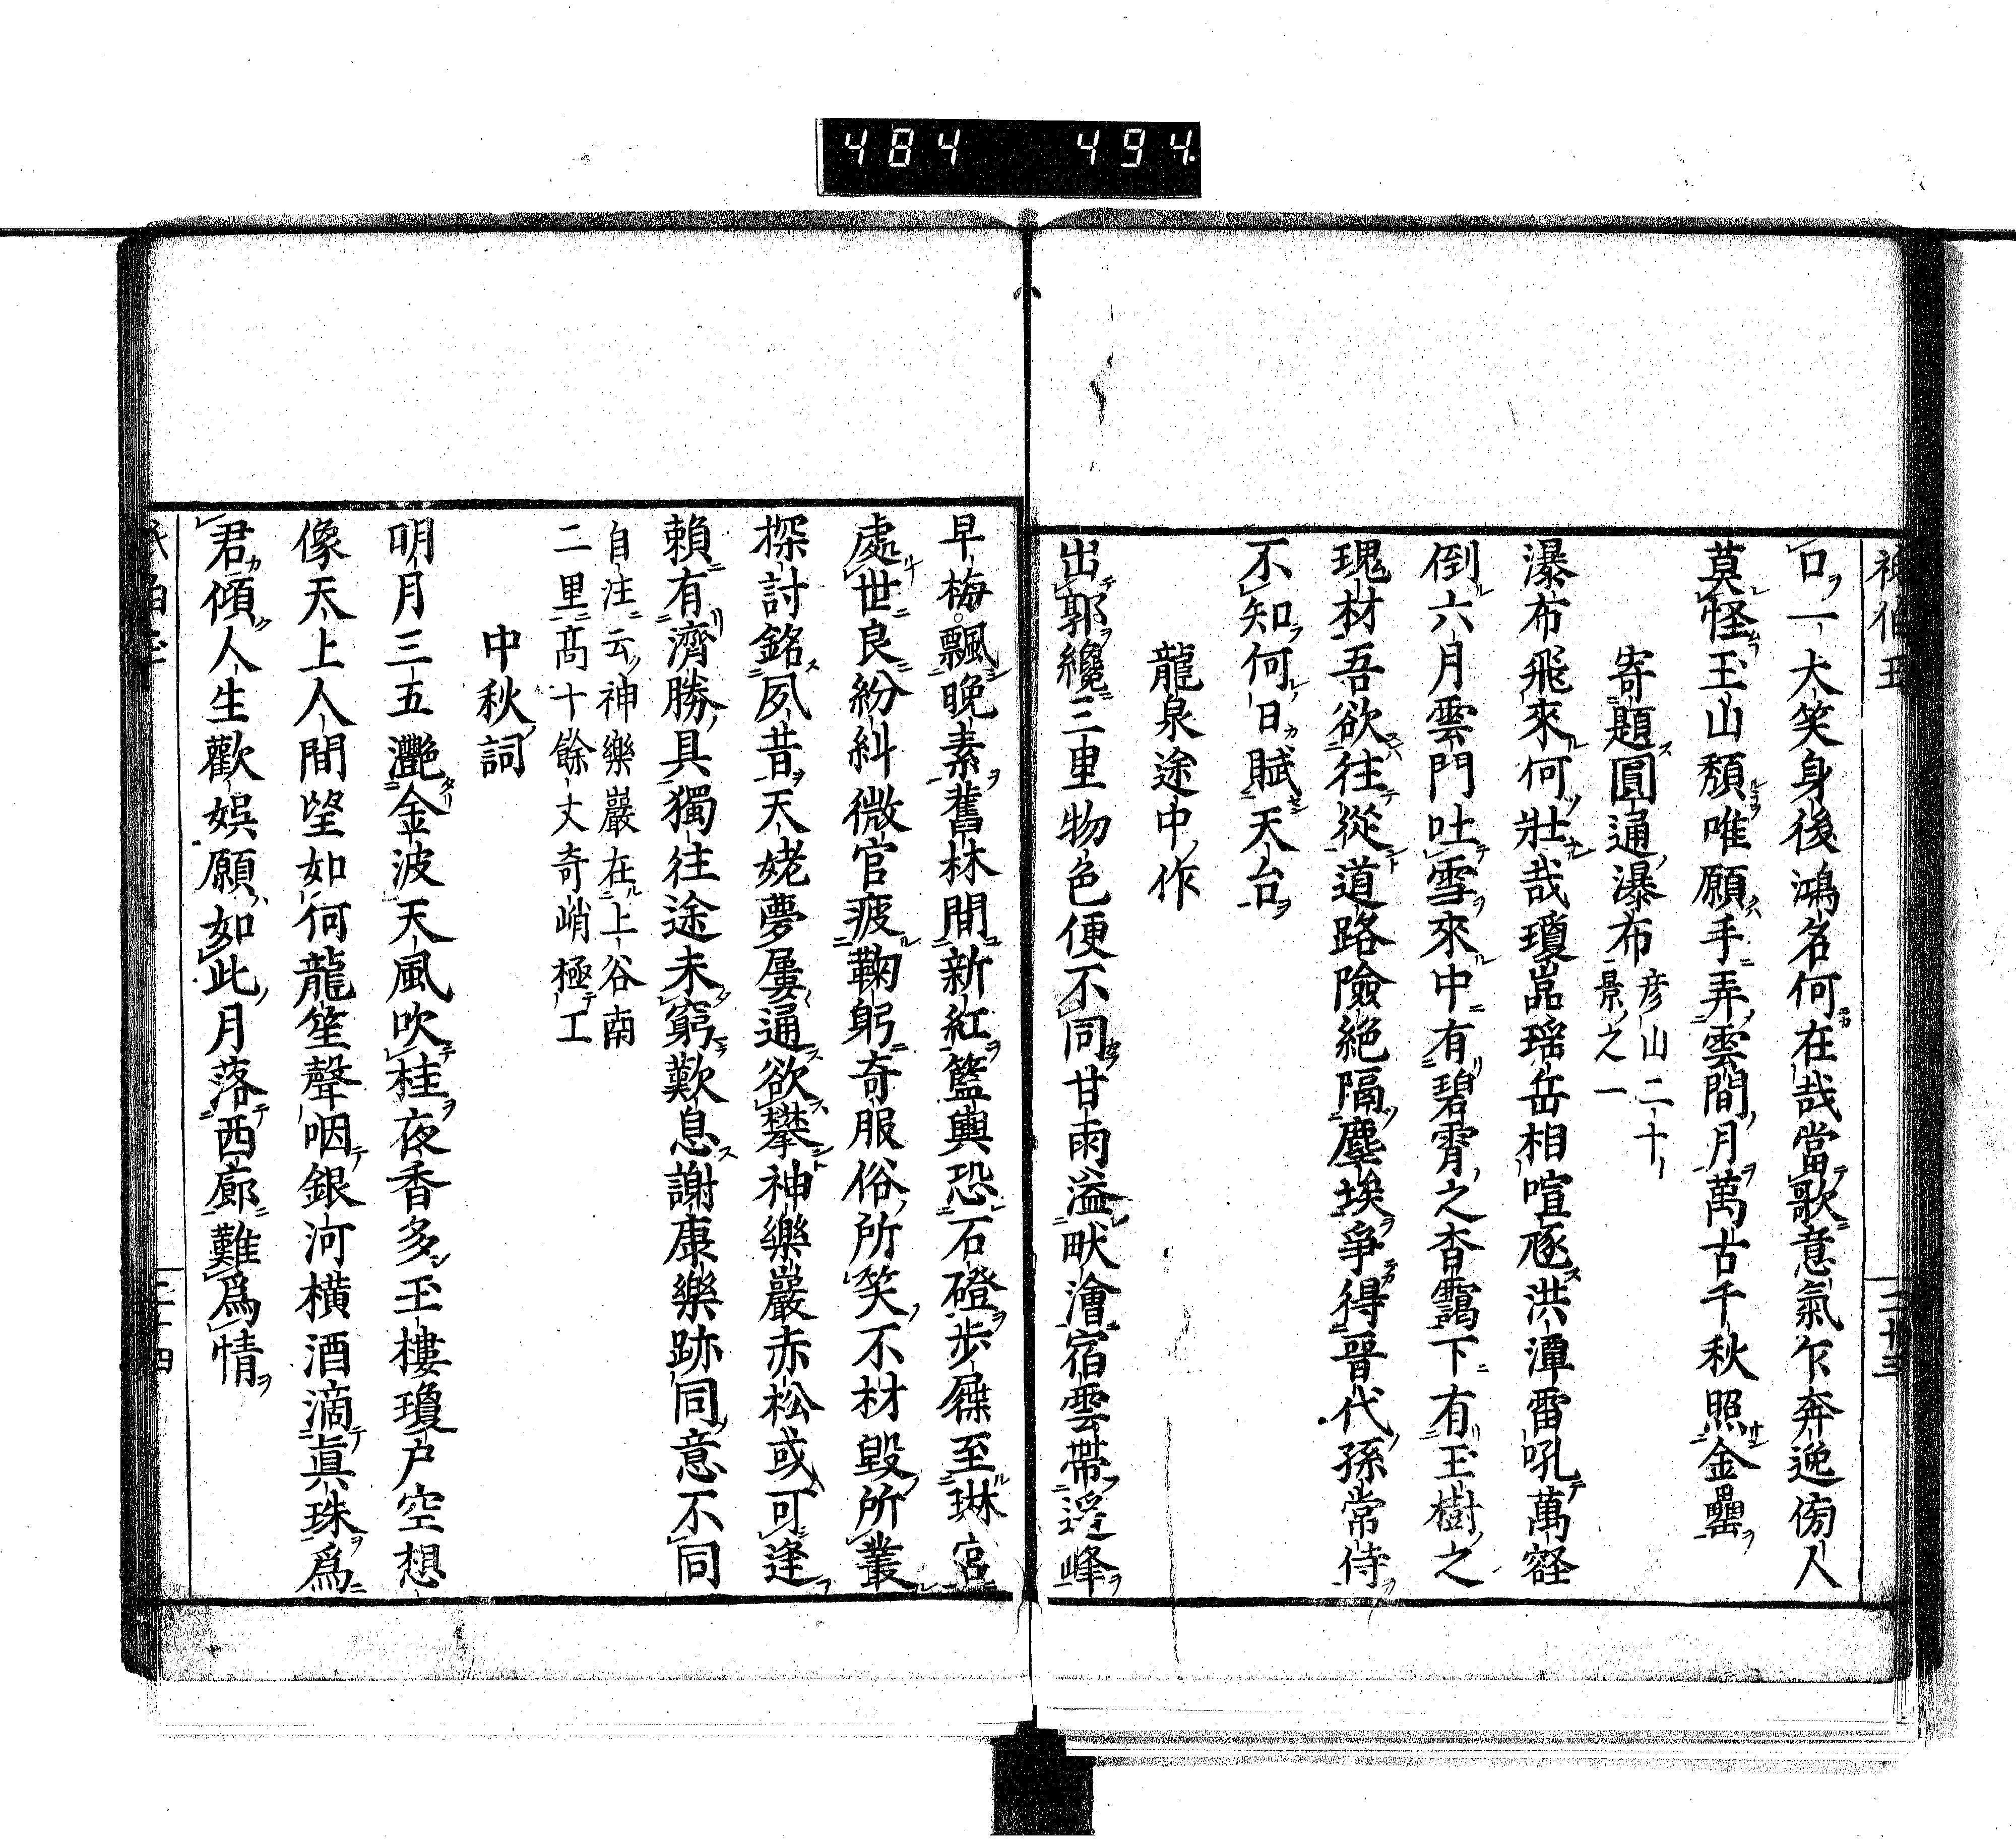 484 494
口一大笑身後鴻名何在哉當歌意氣乍奔逸傍人
莫怪玉山頽唯願手弄雲間月萬古千秋照金罍
寄題圓通瀑布
彦山二十
景之一
瀑布飛來何壯哉瓊崑瑶岳相喧豗洪潭雷吼萬壑
倒六月雲門吐雪來中有碧霄之杳靄下有玉樹之
瑰材吾欲往從道路險絶隔塵埃爭得晉代孫常侍
不知何日賦天台
龍泉途中作
出郭纔三里物色便不同甘雨溢畎澮宿雲帶遥峰
早梅飄晚素舊林間新紅籃輿恐石磴歩屧至琳宮
處世良紛糾微官疲鞠躬奇服俗所笑不材毀所叢
探討銘夙昔天姥夢屢通欲攀神樂巖赤松或可逢
賴有濟勝具獨往途未窮歎息謝康樂跡同意不同
自注云神樂巖在上谷南
二里髙十餘丈奇峭極工
中秋詞
明月三五灧金波天風吹桂夜香多玉樓瓊戸空想
像天上人間望如何龍笙聲咽銀河横酒滴眞珠爲
君傾人生歡娯願如此月落西廊難爲情